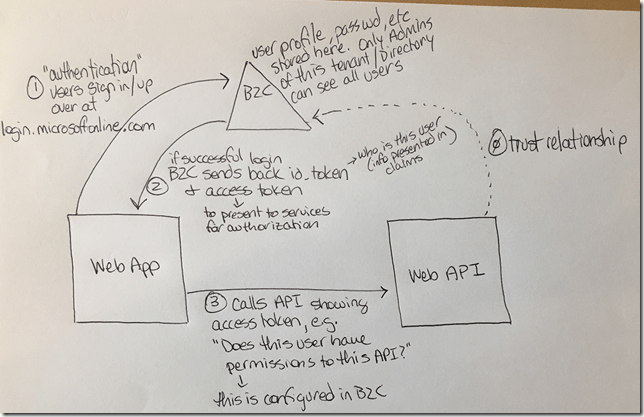 user profile, passwd, etc
stored here. Only Admins
of this tenant/Directory
can see all users
B2C
① "authentication"
users sign in/up
over at
login.microsoftonline.com
② if successful login
B2C sends back id_token
& access token
→ who is this user
(info presented in
claims)
↓
to present to services
for authorization
∅ trust relationship
Web App
Web API
③ calls API showing
access token, e.g.
"Does this user have
permissions to this API?"
↓
this is configured in B2C